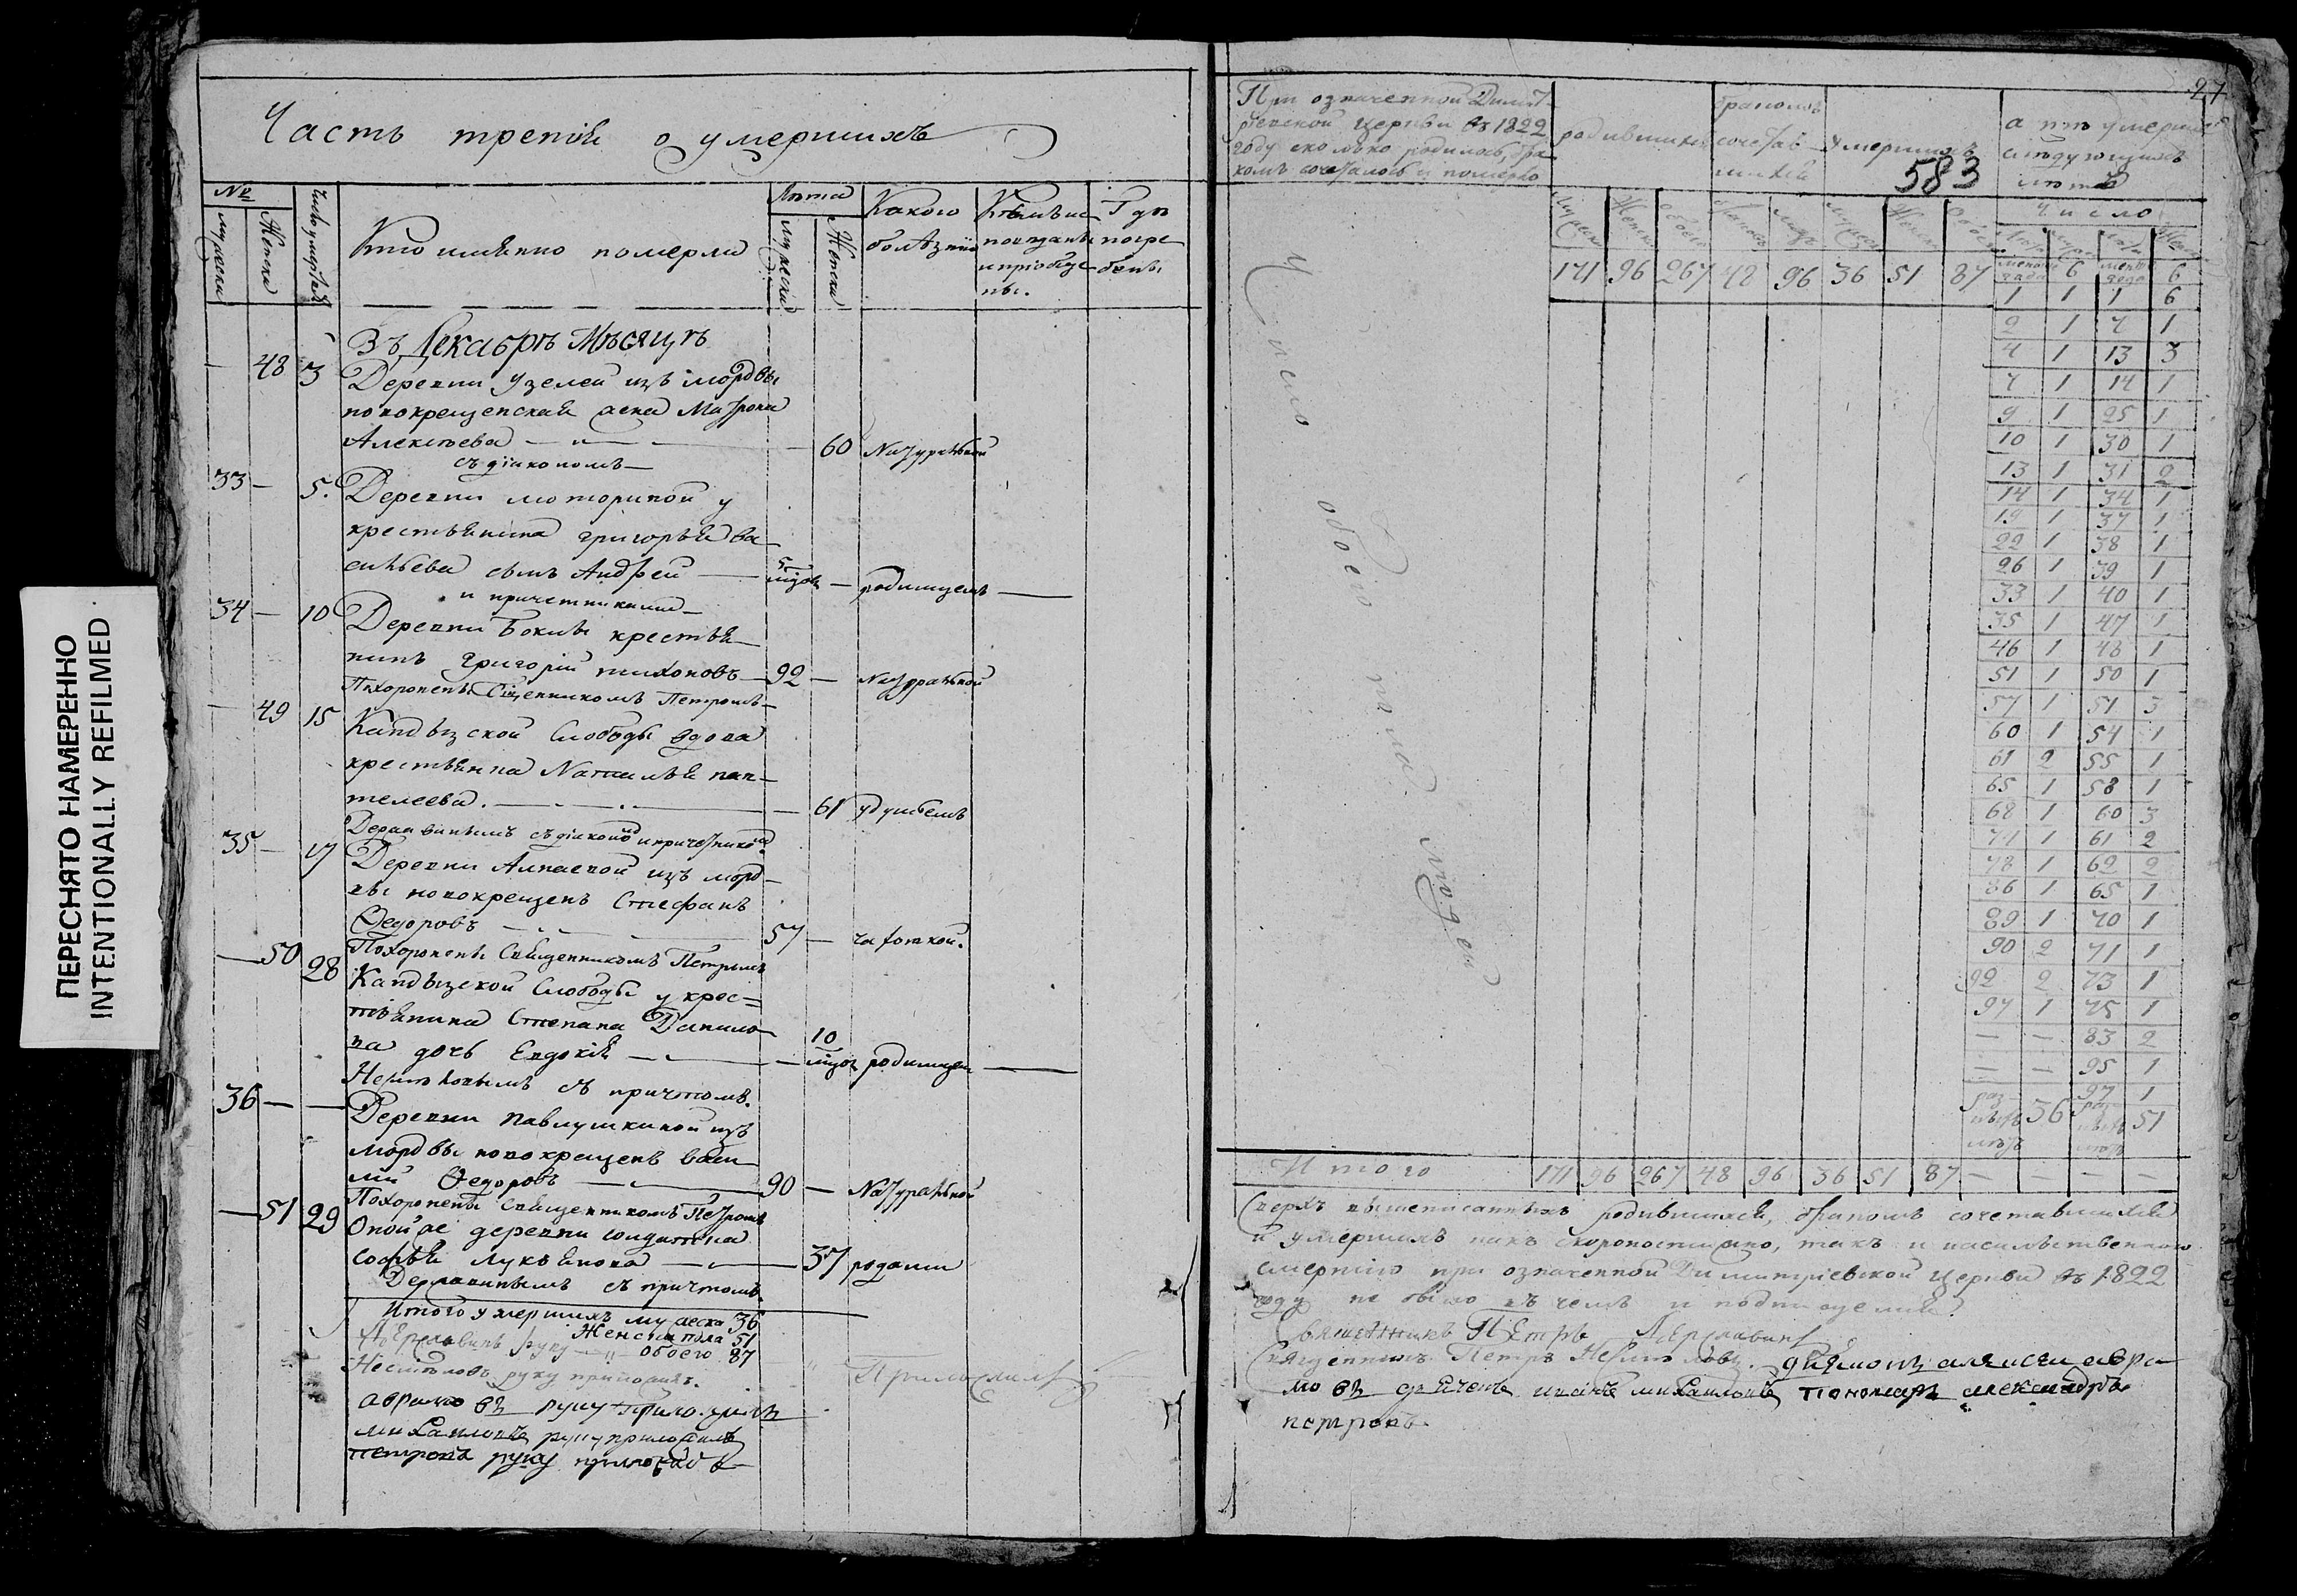 ПЕРЕСНЯТО НАМЕРЕННО
INTENTIONALLY REFILMED
Часть третїя о умершихъ
№
мужеска
Женска
Число умертвїя
Кто имянно померли
Лѣта
мужеска
Женска
Какого болѣзнїю
Кѣмъ исповѣданы и прїобщены.
Гдѣ погребены
Въ Декабрѣ Мѣсяцѣ
— 48 3 Деревни Узелей изъ мордвы
новокрещенская жена Матрона
Алексѣева — 60 Натуральной
съ дїакономъ —
33 — 5. Деревни моториной у
крестьянина григорья Ва
сильева сынъ Андрей — 5 мцовъ — родимцемъ —
и причетниками —
34 — 10 Деревни Бокны крестья
нинъ григорїй тихоновъ — 92 — Натуральной
Похоронены Сщенникомъ Петромъ —
— 49 15 Кандызской Слободы вдова
крестьянка Наталья пан
телеева. — 61 удушьемъ
Державинымъ съ дїакономъ и причетниками
35 — 17 Деревни Алпаевой изъ морд
вы новокрещенъ Стефанъ
Ѳедоровъ — 57 — чахоткой.
Похоронены Священникомъ Петромъ
— 50 28 Кандызской Слободы у крес=
тьянина Степана Данило
ва дочь Евдокїя — 10 мцовъ родимцемъ —
съ причтомъ.
36 — — Деревни Павлушкиной изъ
мордвы новокрещенъ васи
лїй Ѳедоровъ — 90 — Натуральной
Похоронены Священникомъ Петромъ
— 51 29 Оной же деревни солдатка
софья лукьянова — 37 родами
Державинымъ съ причтомъ.
Итого умершихъ мужеска 36
Женска пола 51
Державинъ руку — обоего 87
руку приложилъ. Приложилъ
аврамовъ руку приложилъ
михаиловъ руку приложилъ
петровъ руку приложилъ
27
При означенной Димит
рїевской церкви въ 1822
году сколько родилось, бра
комъ сочеталось и померло
родившихся
бракомъ сочетавшихся
умершихъ
583
а изъ умершихъ
слѣдующихъ
лѣтъ
Число
171 96 267 48 96 36 51 87
менѣе года 6 менѣе года 6
1 1 1 6
2 1 7 1
4 1 13 3
7 1 14 1
9 1 25 1
10 1 30 1
13 1 31 2
14 1 34 1
19 1 37 1
22 1 38 1
26 1 39 1
33 1 40 1
35 1 47 1
46 1 48 1
51 1 50 1
57 1 51 3
60 1 54 1
61 2 55 1
65 1 58 1
68 1 60 3
71 1 61 2
78 1 62 2
86 1 65 1
89 1 70 1
90 2 71 1
92 2 73 1
97 1 75 1
— — 83 2
— — 95 1
— — 97 1
36 51
Число обоего пола людей
Итого 171 96 267 48 96 36 51 87 — — — —
Сверхъ вышеписанныхъ родившихся, бракомъ сочетавшихся
и умершихъ какъ скоропостижно, такъ и насильственною
смертїю при означенной Димитрїевской церкви въ 1822
году не было въ чемъ и подписуемся
Священникъ Петръ Державинъ
Священникъ Петръ дїяконъ алексѣй авра
мовъ дьячекъ иванъ михаиловъ пономарь александръ
петровъ.